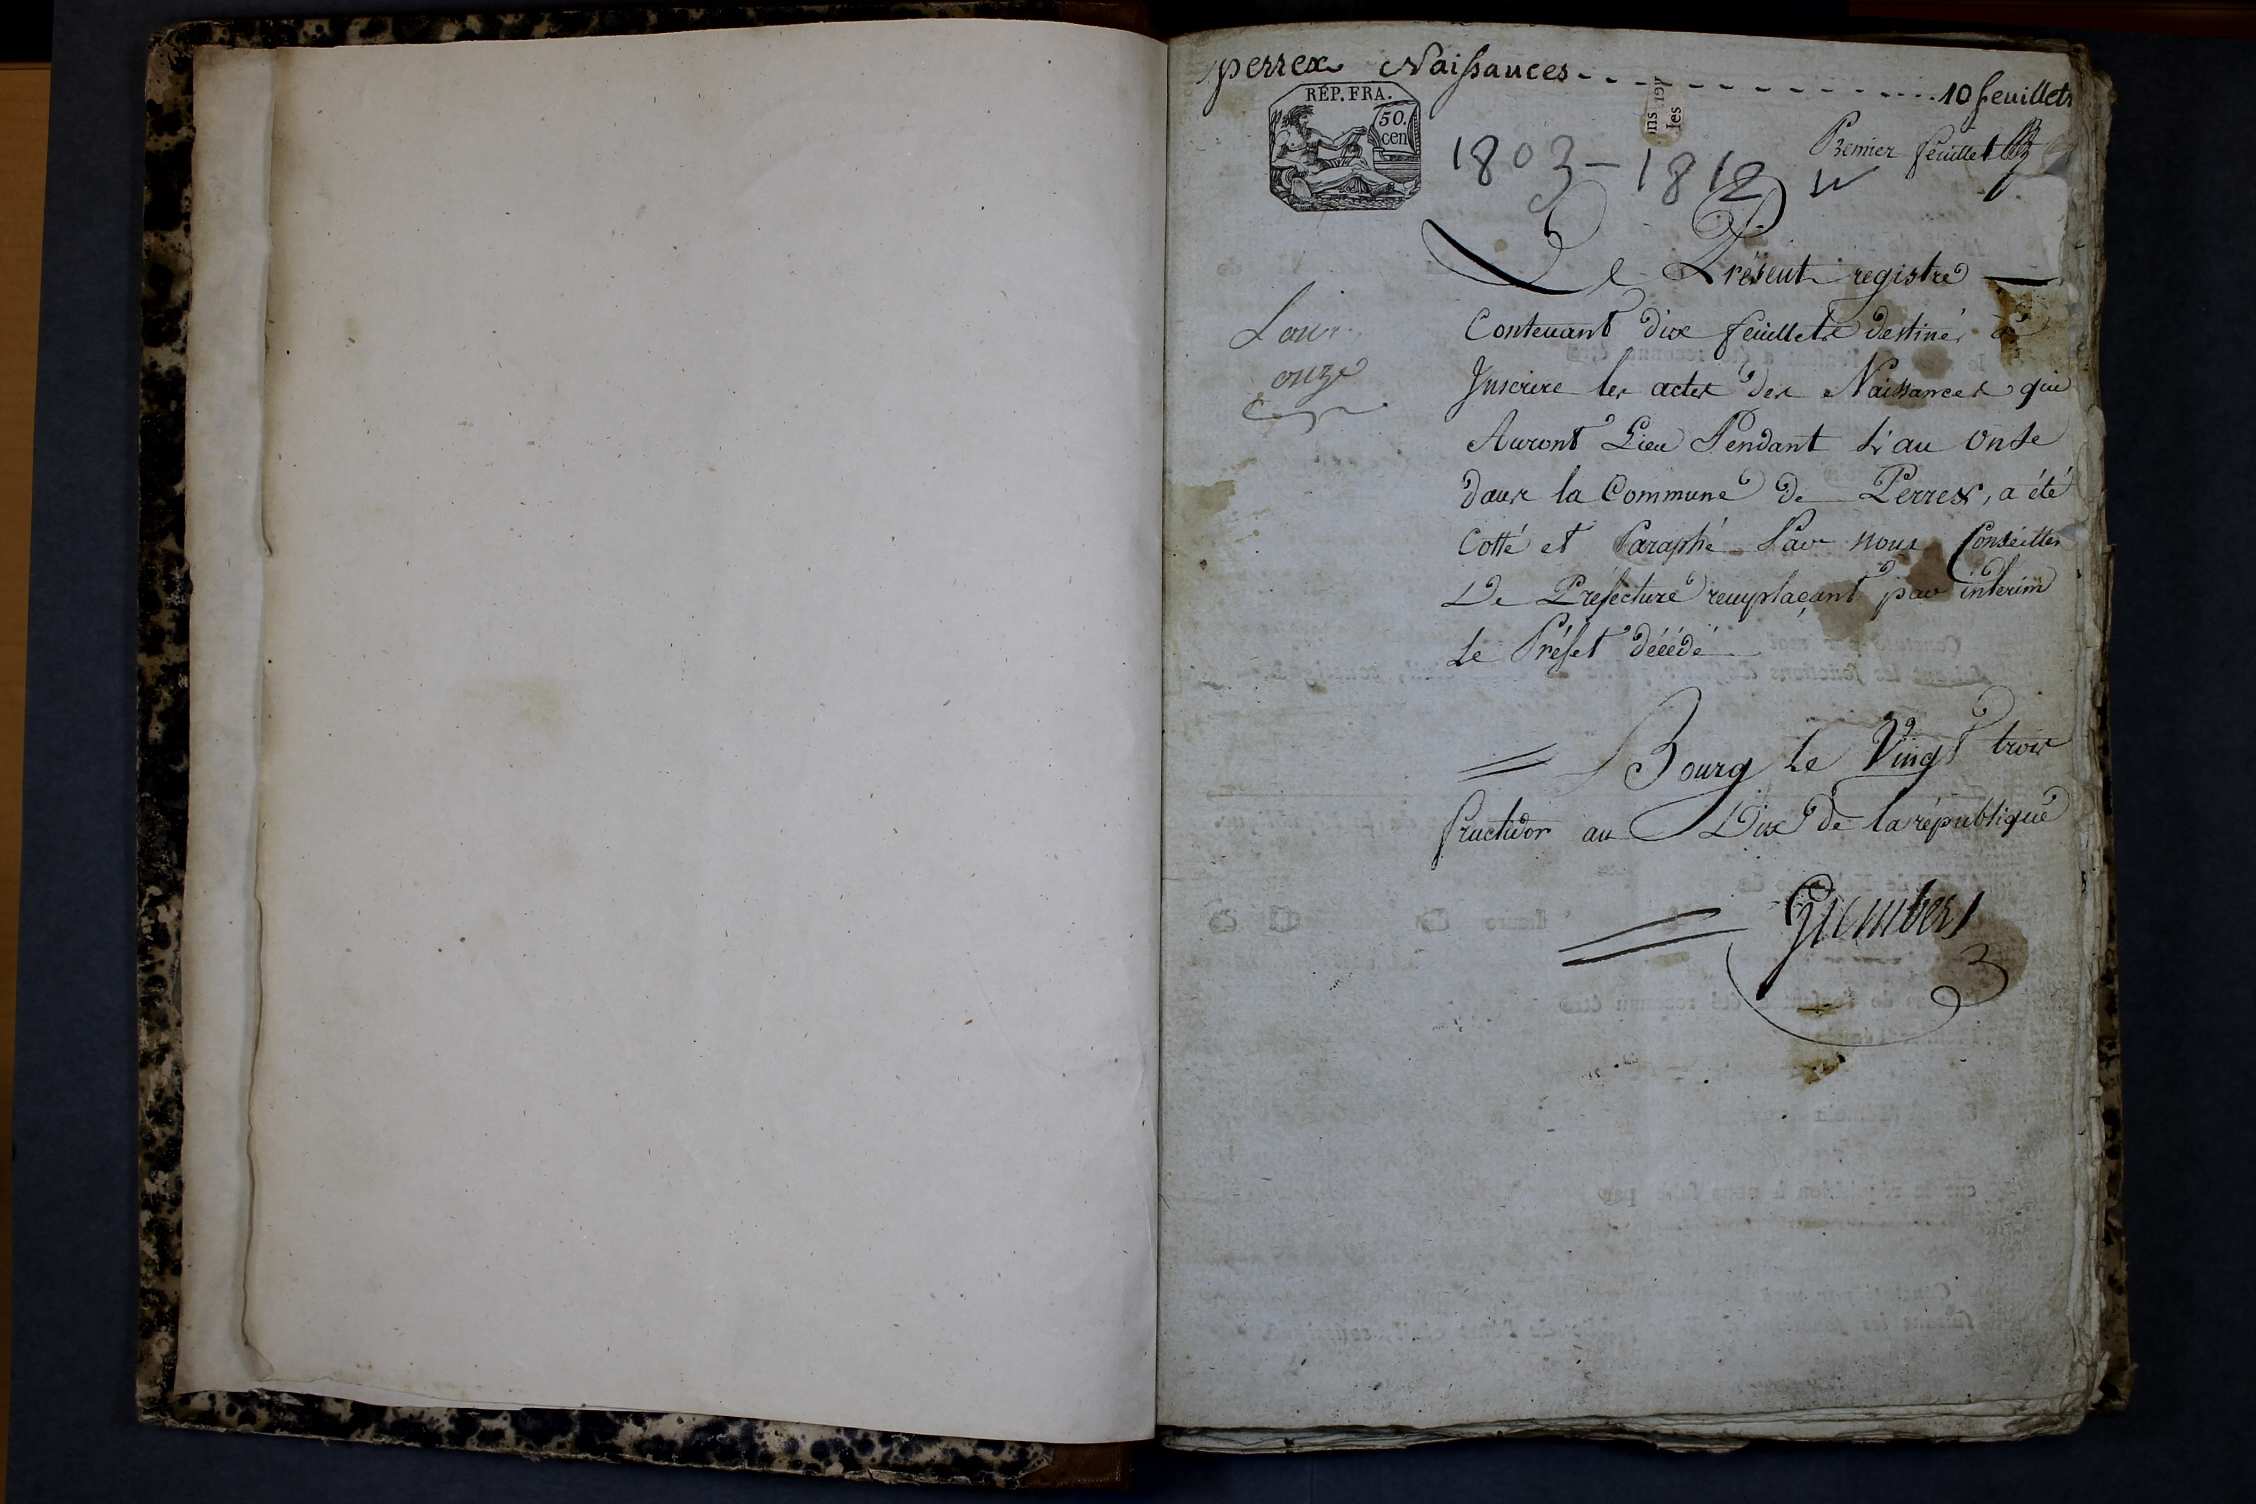 perrex Naissances 10 feuillets
RÉP. FRA.
50.
cen
Premier feuillet
1803 - 1812
Le Présent registre
Contenant dix feuillets destinés à
Inscrire les actes des Naissances qui
Auront Lieu Pendant L'an Onze
dans la Commune de Perrex, a été
Cotté et Paraphé Par nous Conseiller
De Préfecture remplaçant par interim
Le Préfet décédé
L'an
onze
= Bourg Le Vingt trois
fructidor an Dix de la république